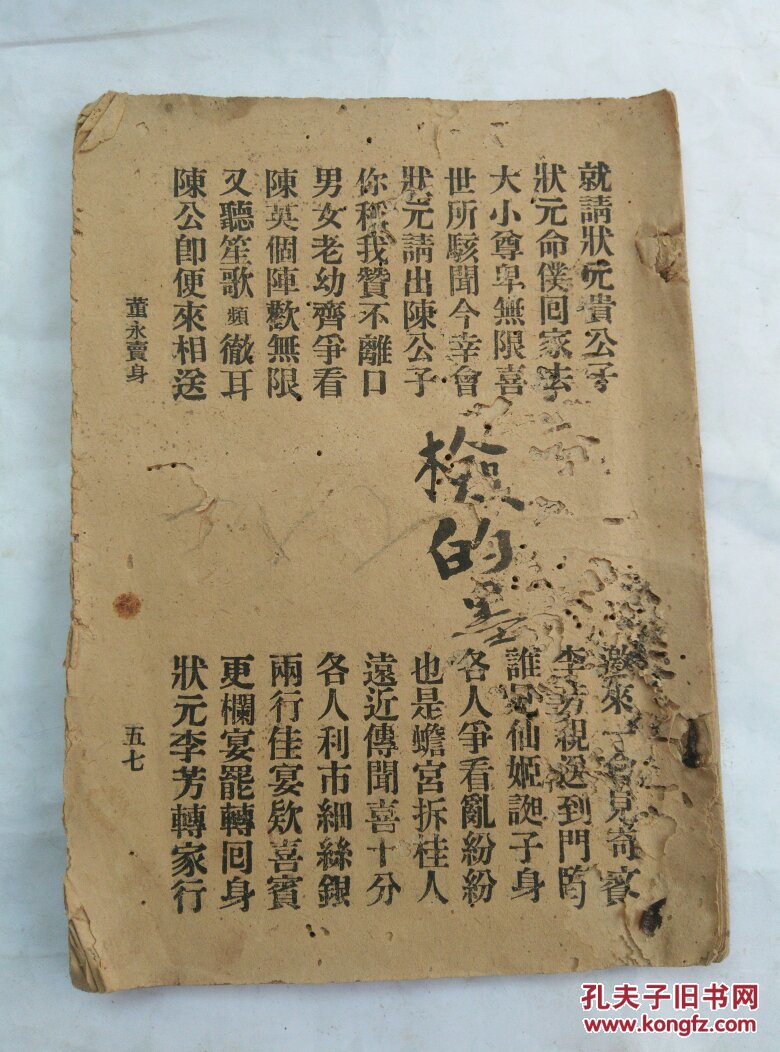 就請狀元貴公子
來一會見寄賓
狀元命僕回家
李芳親送到門
大小尊卑無限喜
誰見仙姬誕子身
世所駭聞今幸會
各人爭看亂紛紛
狀元請出陳公子
也是蟾宮拆桂人
你稱我贊不離口
遠近傳聞喜十分
男女老幼齊爭看
各人利市細絲銀
陳英個陣歡無限
兩行佳宴欵喜賓
又聽笙歌頻徹耳
更欄宴罷轉回身
陳公即便來相送
狀元李芳轉家行
董永賣身
五七
檢的墨
孔夫子旧书网
www.kongfz.com